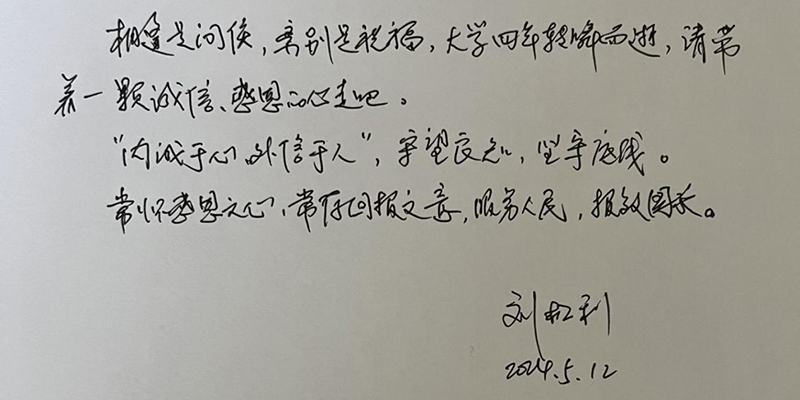 相逢是问候，离别是祝福，大学四年转瞬而逝，请带
着一颗诚信、感恩的心走吧。
“内诚于心，外信于人”，守望良知，坚守底线。
常怀感恩之心，常存回报之意，服务人民，报效国家。
刘利
2024.5.12